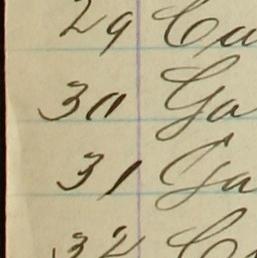 29 Cu
30 Ga
31 Ga
32 C